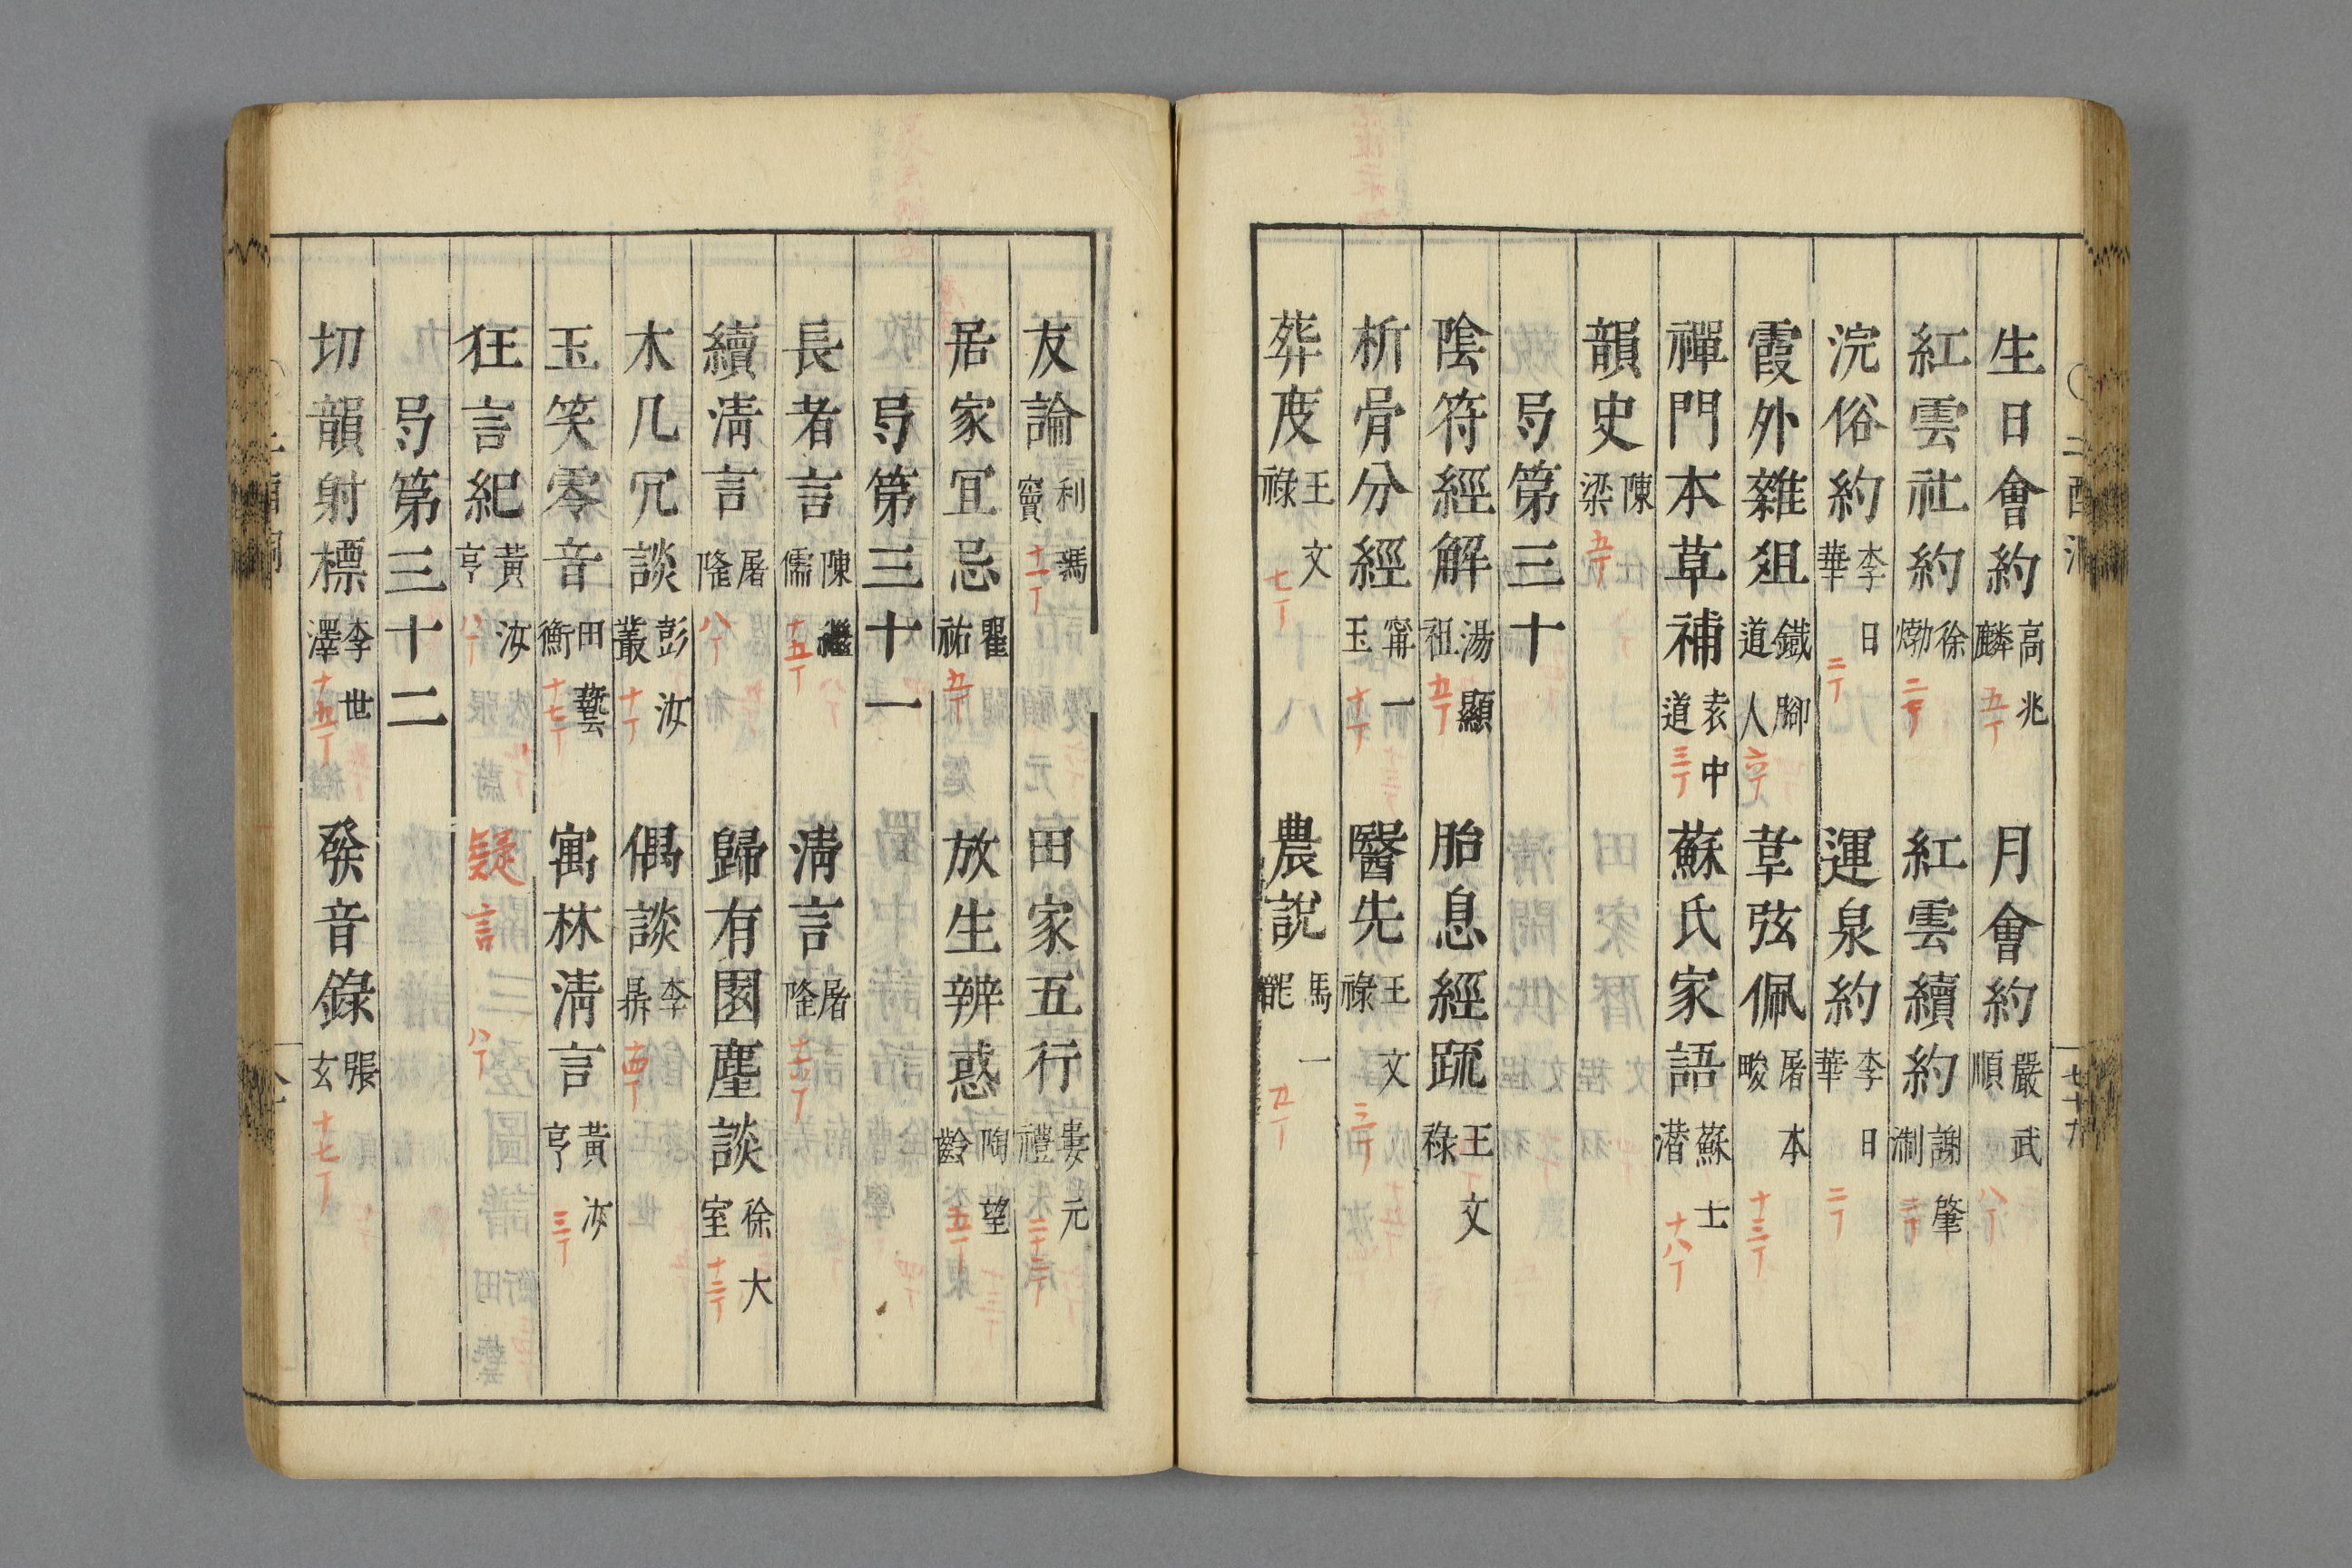 生日會約 高兆麟 五丁 月會約 嚴武順 八丁
紅雲社約 徐𤊹 二丁 紅雲續約 謝肇淛 二丁
浣俗約 李日華 二丁 運泉約 李日華 二丁
霞外雜俎 鐵腳道人 六丁 韋弦佩 屠本畯 十三丁
禪門本草補 袁中道 三丁 蘇氏家語 蘇士潛 十八丁
韻史 陳梁 五丁
弓第三十
陰符經解 湯顯祖 五丁 胎息經疏 王文祿
析骨分經 甯一玉 十丁 醫先 王文祿 三丁
葬度 王文祿 七丁 農說 馬一龍 九丁
友論 利瑪竇 十一丁 田家五行 婁元禮 二十二丁
居家宜忌 瞿祐 五丁 放生辨惑 陶望齡 五丁
弓第三十一
長者言 陳繼儒 十五丁 淸言 屠隆
續淸言 屠隆 八丁 歸有園麈談 徐大室 十二丁
木几冗談 彭汝讓 十丁 偶談 李鼎 十四丁
玉笑零音 田藝衡 十七丁 寓林淸言 黃汝亨 三丁
狂言紀 黃汝亨 八丁 疑言 八丁
弓第三十二
切韻射標 李世澤 十五丁 發音錄 張玄 十七丁